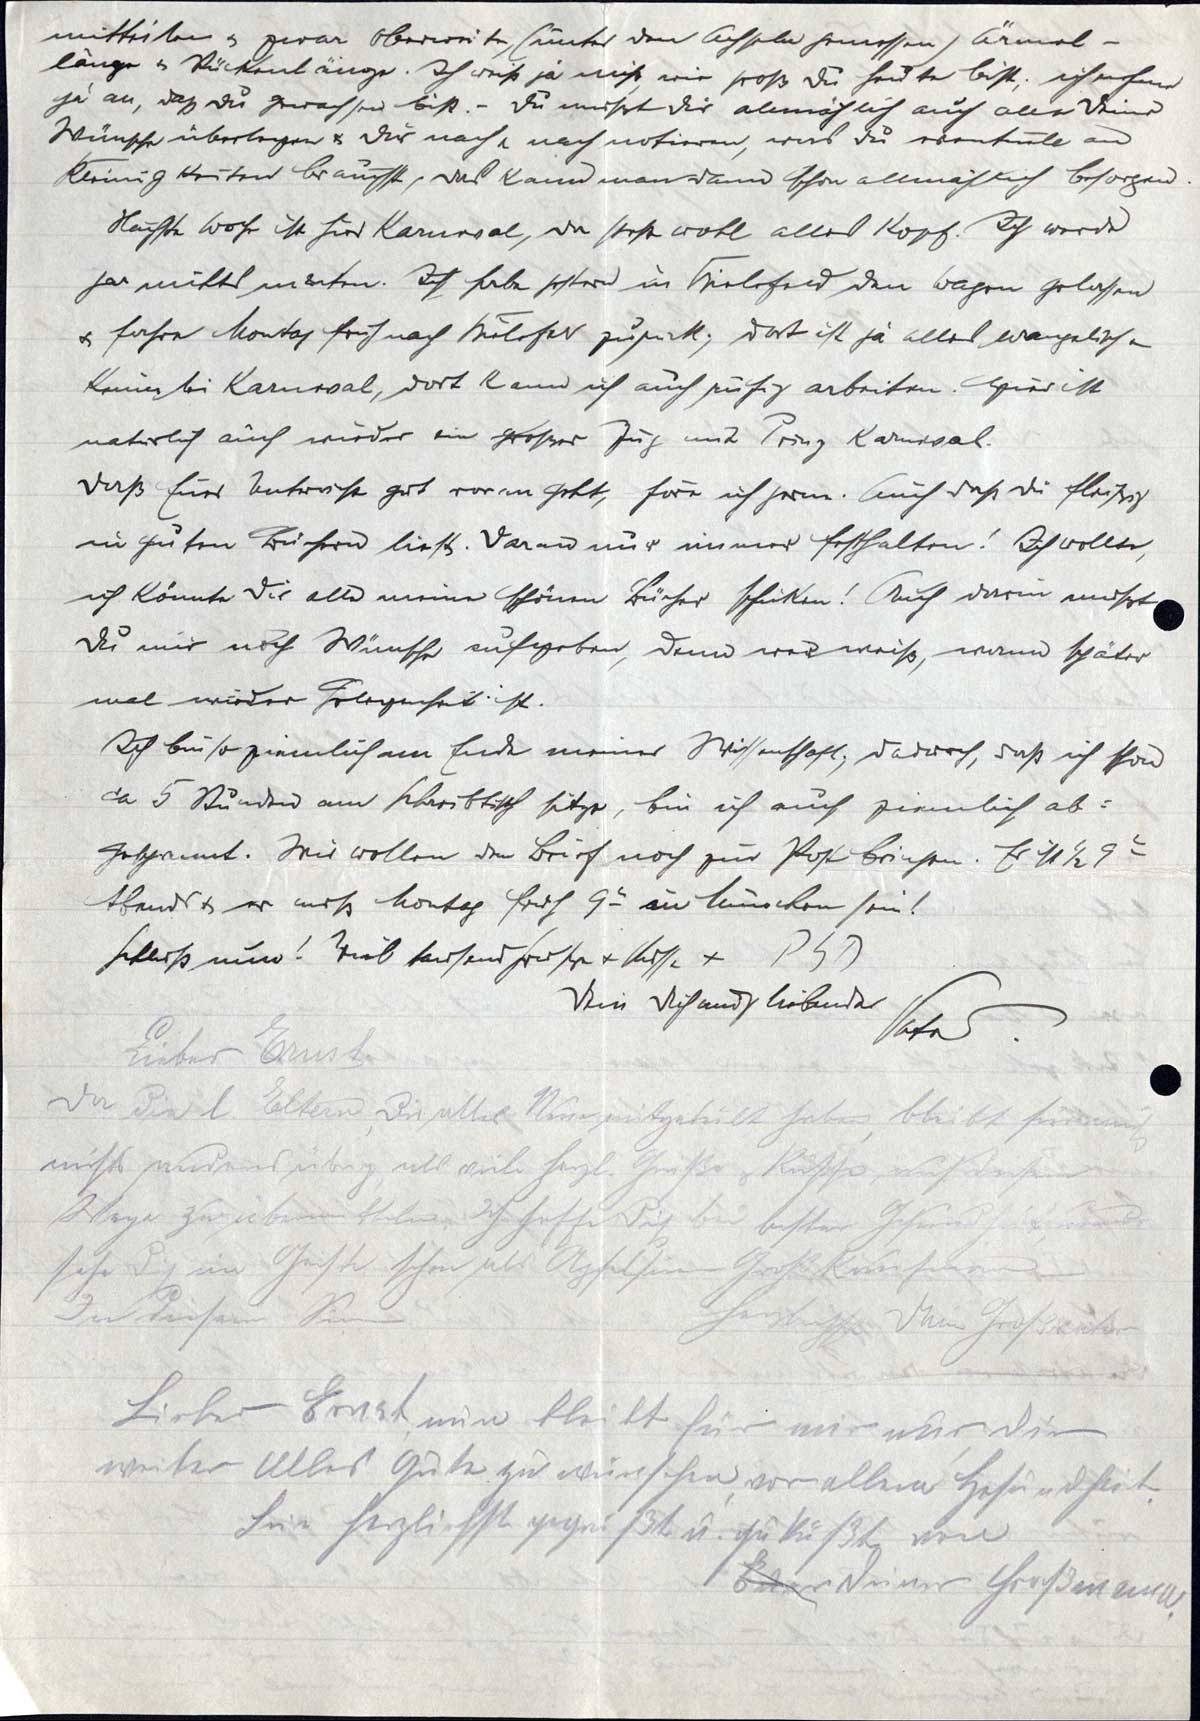 mitteilen & zwar Oberweite (unter den Achseln gemessen) Ärmel-
länge & Rückenlänge. Ich weiß ja nicht, wie groß Du heute bist, ich nehme
ja an, daß Du gewachsen bist. - Du mußt Dir allmählich auch alle Deine
Wünsche überlegen & Dir nach & nach notieren, was Du eventuell an
Kleinigkeiten brauchst, das kann man dann schon allmählich besorgen.
Nächste Woche ist hier Karneval, da steht wohl alles Kopf. Ich werde
gar nichts merken. Ich habe gestern in Bielefeld den Wagen gelassen
& fahre Montag früh nach Bielefeld zurück; dort ist ja alles evangelisch &
keinerlei Karneval, dort kann ich auch ruhig arbeiten. Hier ist
natürlich auch wieder ein großer Zug mit Prinz Karneval.
Daß Euer Unterricht gut voran geht, höre ich gern. Auch daß Du fleißig
in guten Büchern liest. Daran nur immer festhalten! Ich wollte,
ich könnte Dir alle meine schönen Bücher schicken! Auch darin mußt
Du mir noch Wünsche aufgeben, denn wer weiß, wann später
mal wieder Gelegenheit ist.
Ich bin so ziemlich am Ende meiner Wissenschaft; dadurch, daß ich schon
ca 5 Stunden am Schreibtisch sitze, bin ich auch ziemlich ab=
gespannt. Wir wollen den Brief noch zur Post bringen. Er ist ½ 9 
Abends & er muß Montag früh 9 in München sein!
Schluß nun! Viel tausend Grüße & Küsse +
Dein Dich liebender Vater.
Lieber Ernst.
Da Die l. Eltern, Dir alles Neue mitgeteilt haben, bleibt für mich
nichts anderes übrig, als viele herzl. Grüße & Küsse, auf diesem
Wege zu übermitteln. Ich hoffe Dich bei bester Gesundheit, und
sehe Dich im Geiste schon als Apfelsinen Groß Kaufmann
In diesem Sinne herzlichst Dein Großvater
Lieber Ernst, nun bleibt für mir nur, Dir
weiter Alles Gute zu wünschen, vor allem Gesundheit.
Sei herzlichst gegrüßt u. geküßt von
Deiner Großmama.